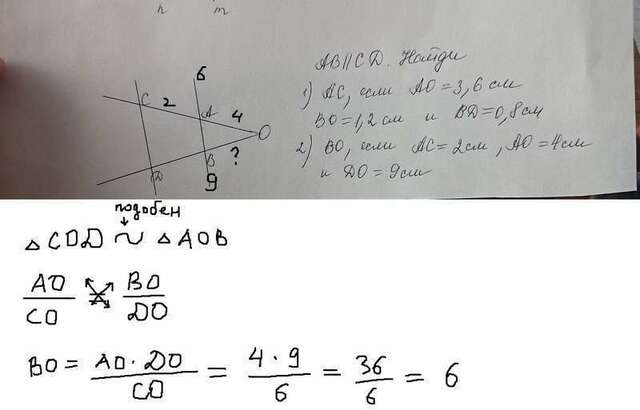 n m
6
C 2 A 4 O
B ?
D
9
AB || CD. Найди
1) AC, если AO = 3,6 см
BO = 1,2 см и BD = 0,8 см
2) BO, если AC = 2 см, AO = 4 см
и DO = 9 см
подобен
△COD ~ △AOB
AO/CO = BO/DO
BO = AO · DO/CO = 4 · 9/6 = 36/6 = 6